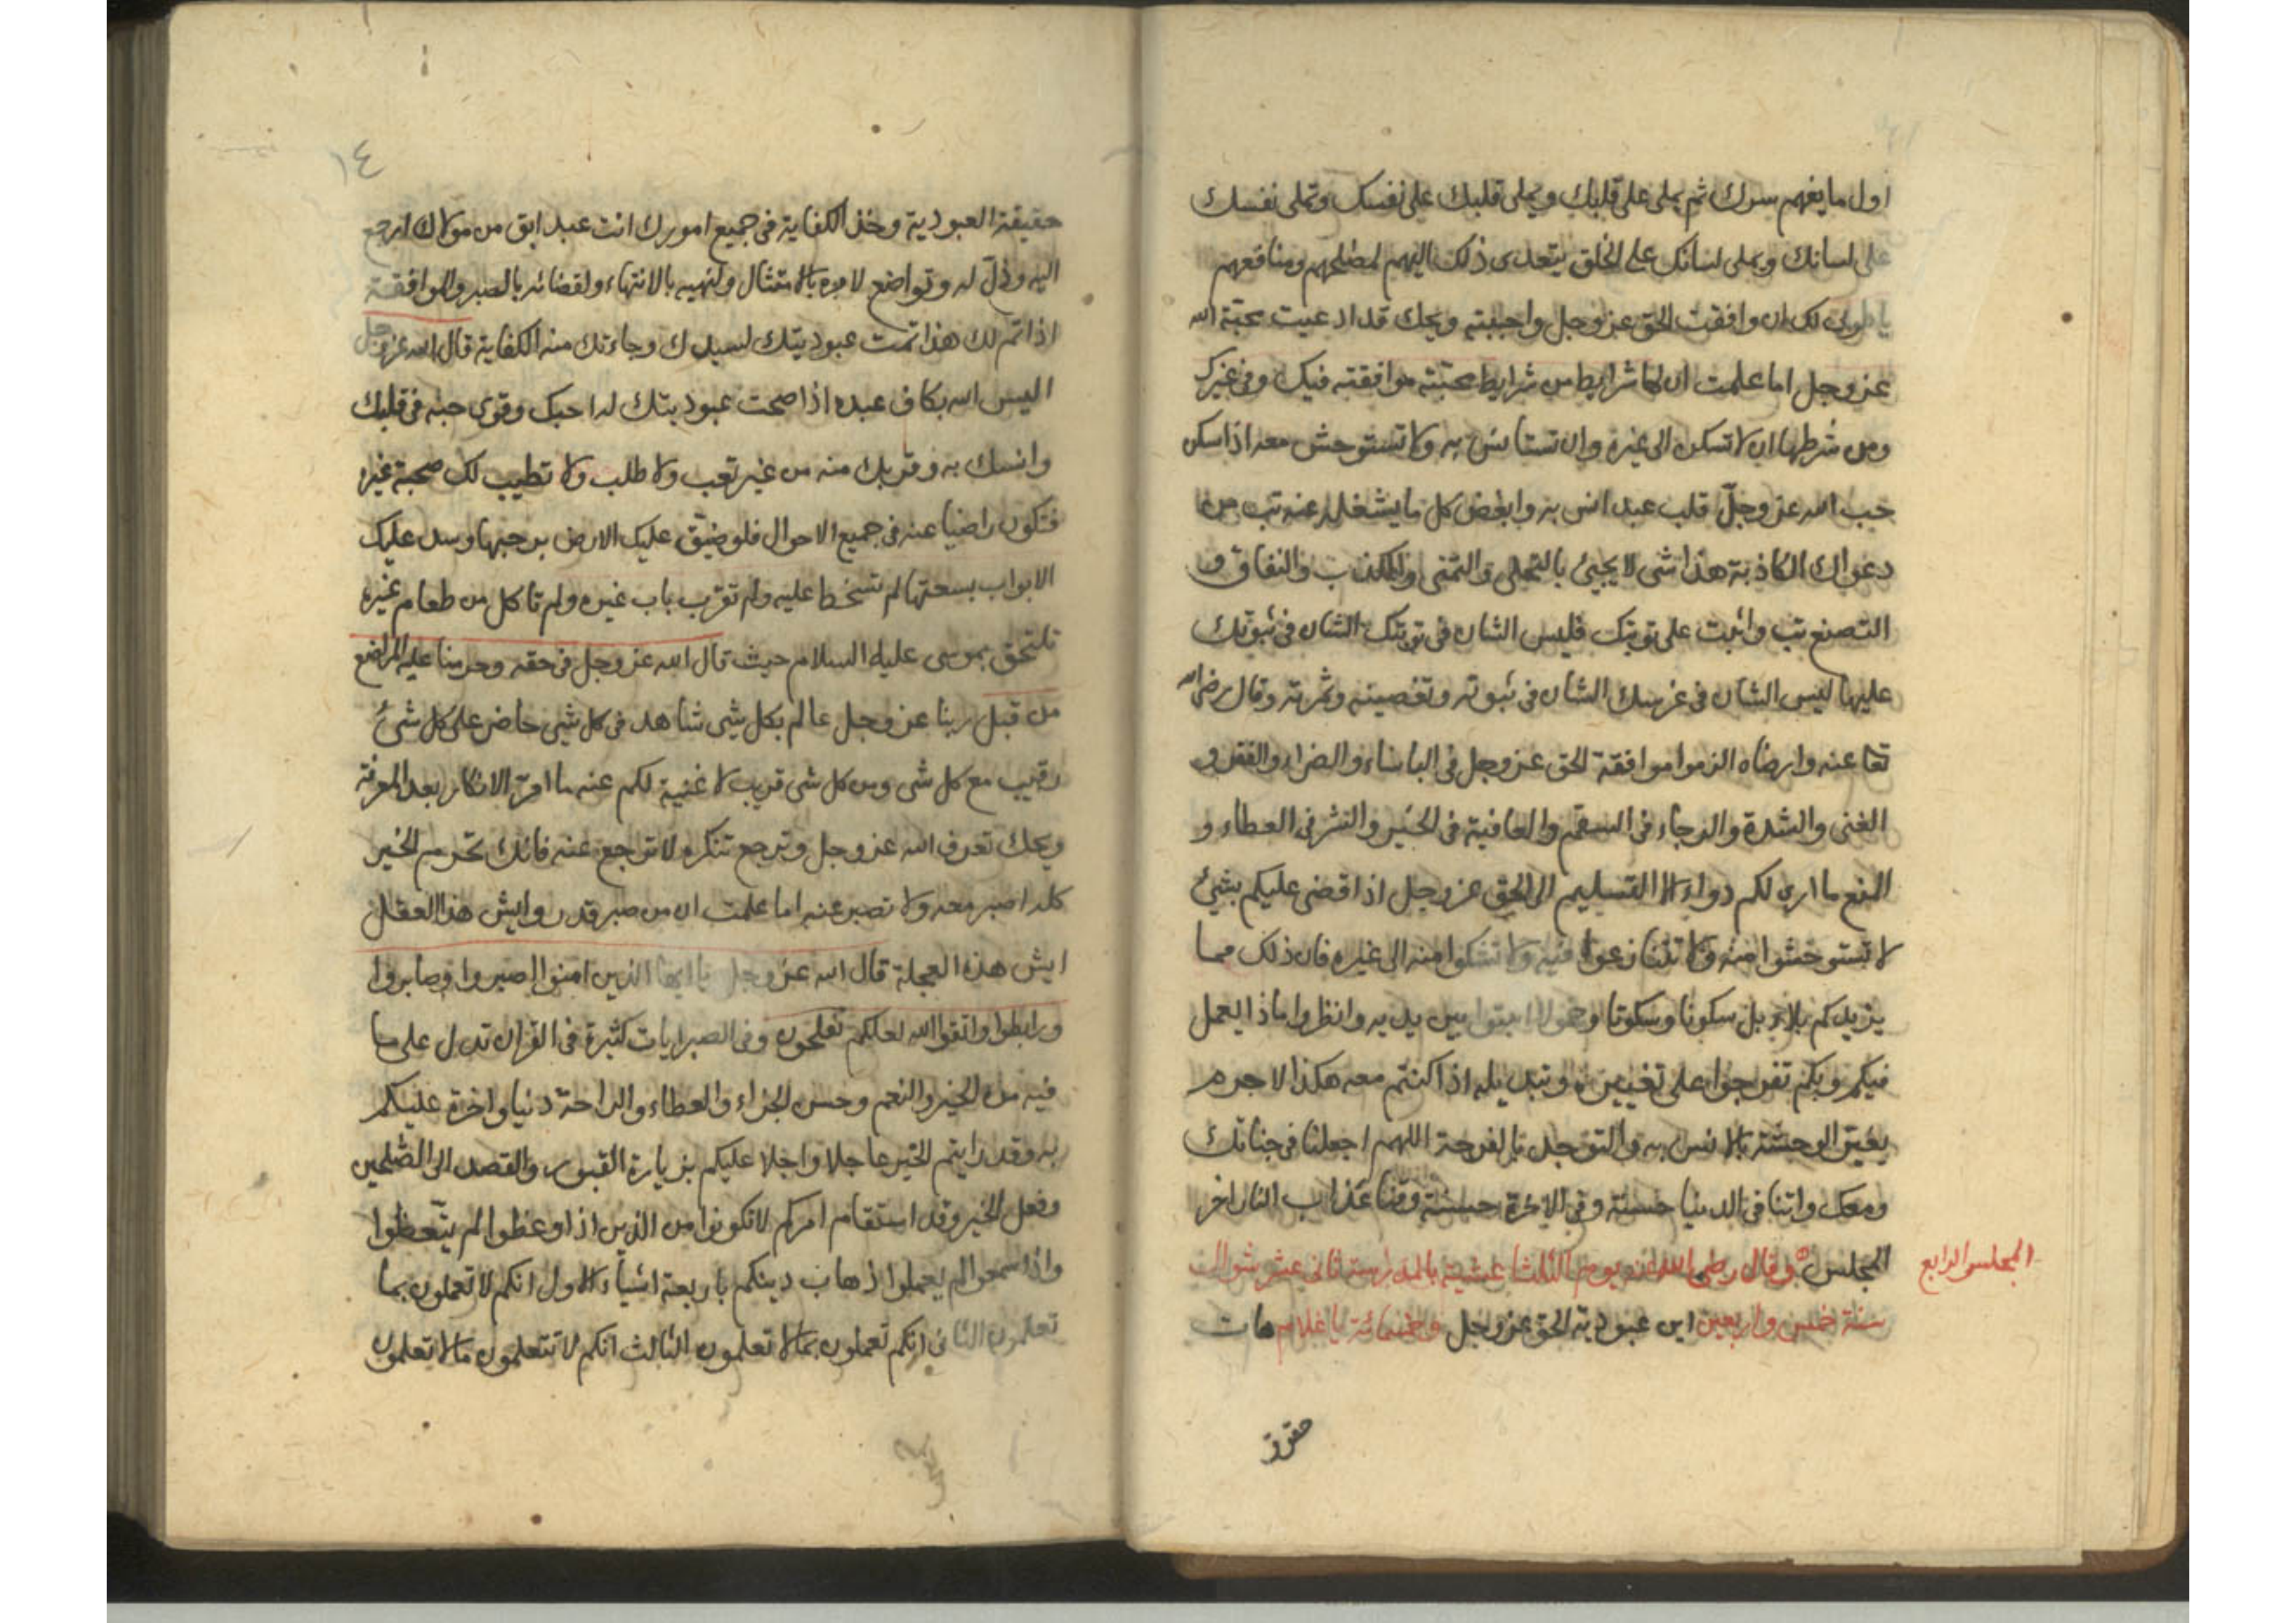 اول ما يفهم سرك ثم يملى على قلبك ويملى قلبك على نفسك وتملى نفسك
على لسانك ويملى لسانك على الخلق يتعدى ذلك اليهم لمصلحهم ومنافعهم
يا طوبى لك ان وافقت الحق عز وجل واحببته ويحك قد ادعيت محبة الله
عز وجل اما علمت ان لها شرايط من شرايط محبته موافقته فيك وفى غيرك
ومن شرطها ان لا تسكن الى غيره وان تستانس به ولا تستوحش معه اذا سكن
حب الله عز وجلّ قلب عبد انس به وابغض كل ما يشغله عنه تب من
دعواك الكاذبة هذا شى لا يجيئ بالتحلى والتمنى والكذب والنفاق و
التصنع تب واثبت على توبتك فليس الشان فى توبتك الشان فى ثبوتك
عليها ليس الشان فى غرسك الشان فى ثبوته وتغصينه وثمرته وقال رضى الله
تعا عنه وارضاه الزموا موافقة الحق عز وجل فى الباساء والضراء والفقر و
الغنى والشدة والرجاء فى السقم والعافية فى الخير والشر فى العطاء و
المنع ما ارى لكم دواء الا التسليم الى الحق عز وجل اذا قضى عليكم بشئ
لا تستوحشوا منه ولا تنازعوا فيه ولا تشكوا منه الى غيره فان ذلك مما
يزيدكم بلاء بل سكونا وسكوتا وخمولا اثبتوا بين يديه وانظروا ماذا يعمل
فيكم وبكم تفرجوا على تغييره وتبديله اذا كنتم معه هكذا لا جرم
يغير الوحشة بالانس به والتوحد بالفرحة اللهم اجعلنا فى جنابك
ومعك واتنا فى الدنيا حسنة وفى الاخرة حسنة وقنا عذاب النار اخر
المجلس وقال رضى الله عنه يوم الثلثا عشية بالمدرسة ثانى عشر شوال
سنة خمس واربعين اين عبودية الحق عز وجل وخمسمائة يا غلام هات
المجلس الرابع
١٤
حقيقة العبودية وخذ الكفاية فى جميع امورك انت عبد ابق من مولاك ارجع
اليه وذلّ له وتواضع لامره بالامتثال ولنهيه بالانتهاء ولقضائه بالصبر والموافقة
اذا تم لك هذا تمت عبوديتك لسيدك وجاءتك منه الكفاية قال الله عز وجل
اليس الله بكاف عبده اذا صحت عبوديتك له احبك وقوى حبه فى قلبك
وانسك به وقربك منه من غير تعب ولا طلب ولا تطيب لك صحبة غيره
فتكون راضيا عنه فى جميع الاحوال فلو ضيّق عليك الارض برحبها وسد عليك
الابواب بسعتها لم تسخط عليه ولم تقرب باب غيره ولم تاكل من طعام غيره
تلتحق بموسى عليه السلام حيث قال الله عز وجل فى حقه وحرمنا عليه المراضع
من قبل ربنا عز وجل عالم بكل شى شاهد فى كل شى حاضر على كل شئ
رقيب مع كل شى ومن كل شى قريب لا غنية لكم عنه ما امر الانكار بعد المعرفة
ويحك تعرف الله عز وجل وترجع تنكره لا ترجع عنه فانك تحرم الخير
كله اصبر معه ولا تصبر عنه اما علمت ان من صبر قدر وايش هذا العقل
ايش هذه العجلة قال الله عز وجل يا ايها الذين امنوا اصبروا وصابروا
ورابطوا واتقوا الله لعلكم تفلحون وفى الصبر ايات كثيرة فى القران تدل على ما
فيه من الخير والنعم وحسن الجزاء والعطاء والراحة دنيا واخرة عليكم
به وقد رايتم الخير عاجلا واجلا عليكم بزيارة القبور والقصد الى الصّلحين
وفعل الخير وقد استقام امركم لا تكونوا من الذين اذا وعظوا لم يتّعظوا
واذا سمعوا لم يعملوا ذهاب دينكم باربعة اشياء الاول انكم لا تعملون بما
تعلمون الثانى انكم تعملون بما لا تعلمون الثالث انكم لا تتعلمون ما لا تعلمون